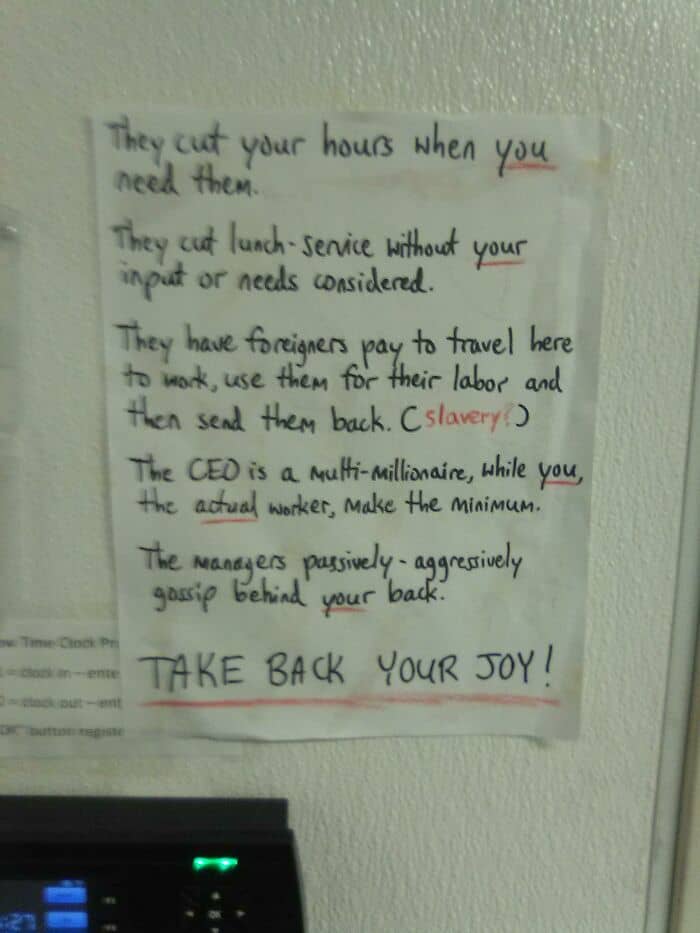 They cut your hours when you
need them.
They cut lunch-service without your
input or needs considered.
They have foreigners pay to travel here
to work, use them for their labor and
then send them back. (slavery?)
The CEO is a multi-millionaire, while you,
the actual worker, make the minimum.
The managers passively-aggressively
gossip behind your back.
TAKE BACK YOUR JOY!
Time Clock
clock in
clock out
button
OK
:27